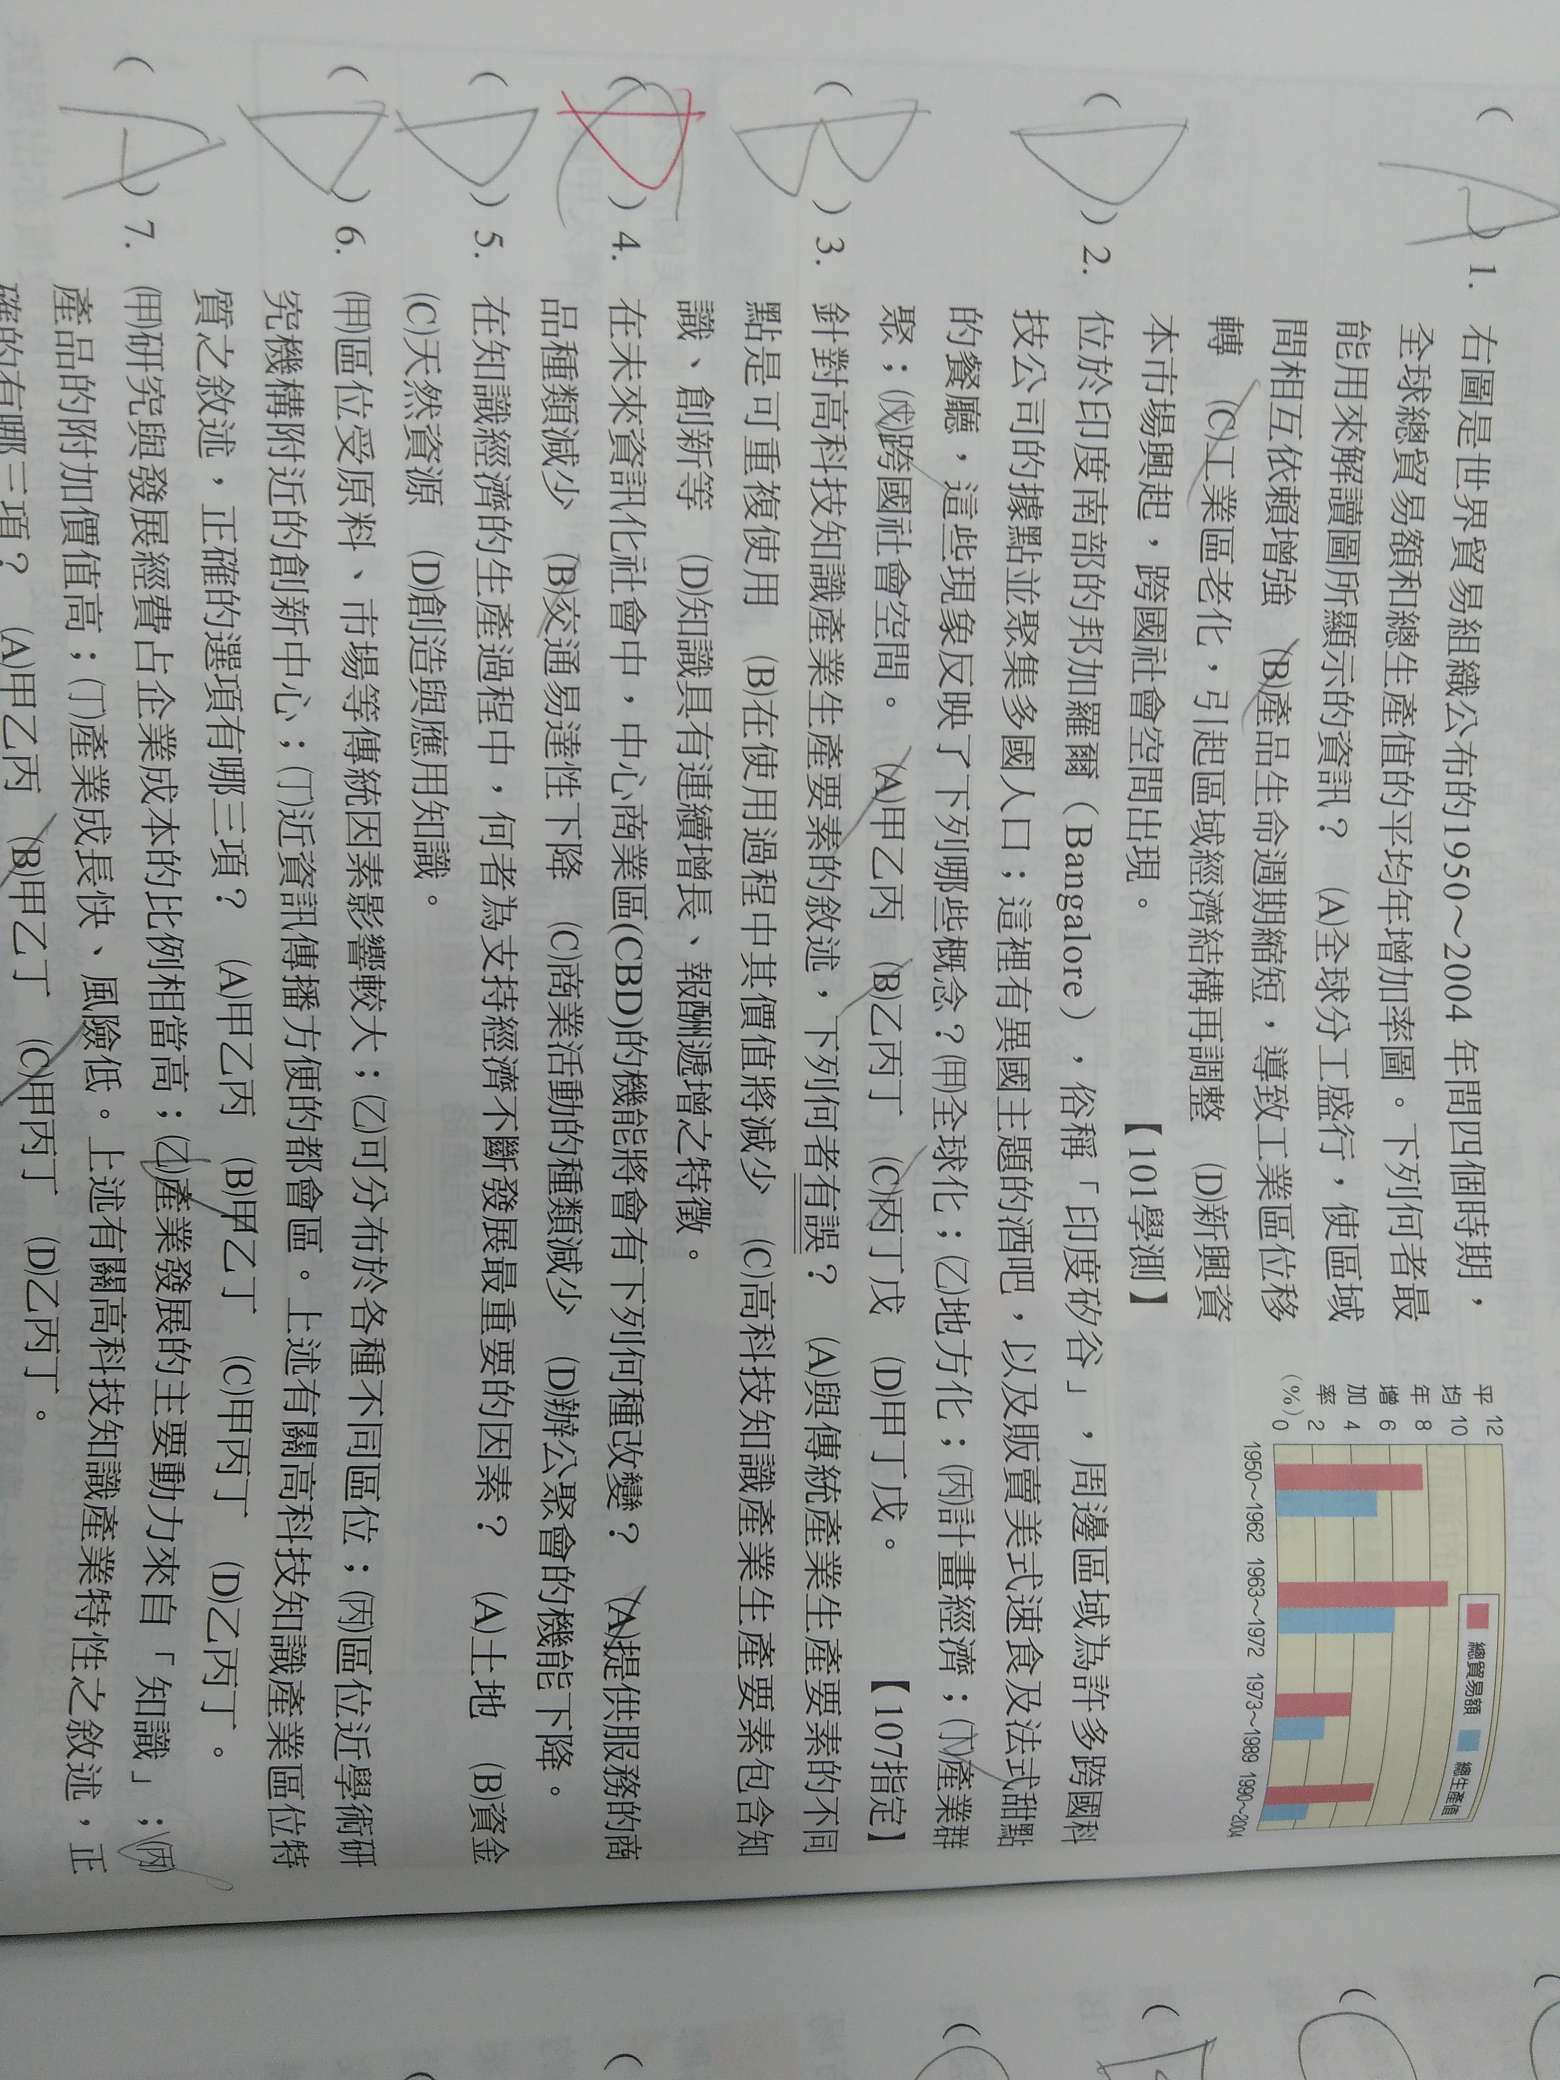 ( A ) 1. 右圖是世界貿易組織公布的1950～2004 年間四個時期，
全球總貿易額和總生產值的平均年增加率圖。下列何者最
能用來解讀圖所顯示的資訊？ (A)全球分工盛行，使區域
間相互依賴增強 (B)產品生命週期縮短，導致工業區位移
轉 (C)工業區老化，引起區域經濟結構再調整 (D)新興資
本市場興起，跨國社會空間出現。 【101學測】
平均年增加率(%)
12
10
8
6
4
2
0
總貿易額 總生產值
1950～1962 1963～1972 1973～1989 1990～2004
( D ) 2. 位於印度南部的邦加羅爾（Bangalore），俗稱「印度矽谷」，周邊區域為許多跨國科
技公司的據點並聚集多國人口；這裡有異國主題的酒吧，以及販賣美式速食及法式甜點
的餐廳，這些現象反映了下列哪些概念？(甲)全球化；(乙)地方化；(丙)計畫經濟；(丁)產業群
聚；(戊)跨國社會空間。 (A)甲乙丙 (B)乙丙丁 (C)丙丁戊 (D)甲丁戊。 【107指定】
( B ) 3. 針對高科技知識產業生產要素的敘述，下列何者有誤？ (A)與傳統產業生產要素的不同
點是可重複使用 (B)在使用過程中其價值將減少 (C)高科技知識產業生產要素包含知
識、創新等 (D)知識具有連續增長、報酬遞增之特徵。
( D ) 4. 在未來資訊化社會中，中心商業區(CBD)的機能將會有下列何種改變？ (A)提供服務的商
品種類減少 (B)交通易達性下降 (C)商業活動的種類減少 (D)辦公聚會的機能下降。
( D ) 5. 在知識經濟的生產過程中，何者為支持經濟不斷發展最重要的因素？ (A)土地 (B)資金
(C)天然資源 (D)創造與應用知識。
( D ) 6. (甲)區位受原料、市場等傳統因素影響較大；(乙)可分布於各種不同區位；(丙)區位近學術研
究機構附近的創新中心；(丁)近資訊傳播方便的都會區。上述有關高科技知識產業區位特
質之敘述，正確的選項有哪三項？ (A)甲乙丙 (B)甲乙丁 (C)甲丙丁 (D)乙丙丁。
( A ) 7. (甲)研究與發展經費占企業成本的比例相當高；(乙)產業發展的主要動力來自「知識」；(丙)
產品的附加價值高；(丁)產業成長快、風險低。上述有關高科技知識產業特性之敘述，正
確的有哪三項？ (A)甲乙丙 (B)甲乙丁 (C)甲丙丁 (D)乙丙丁。